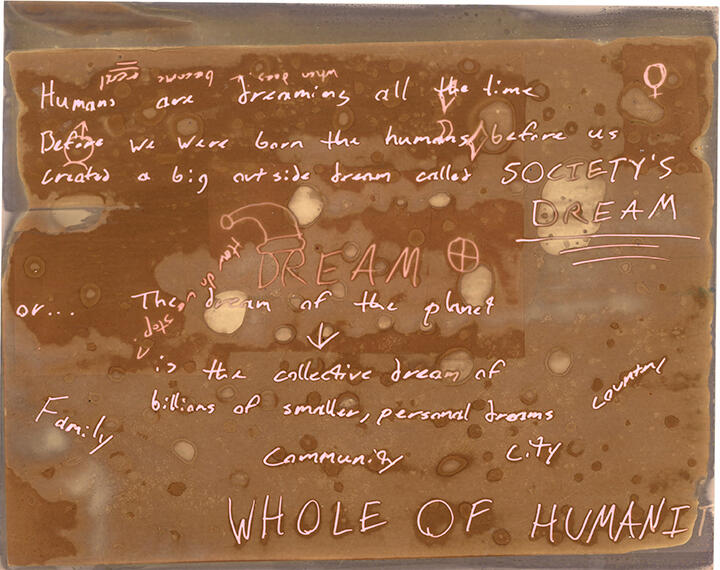 when does it become real
Humans are dreaming all the time
Before we were born the humans before us
created a big outside dream called SOCIETY'S
DREAM
DREAM
How do u stop
or... The dream of the planet
is the collective dream of
billions of smaller, personal dreams
Country
Family
Community City
WHOLE OF HUMANIT